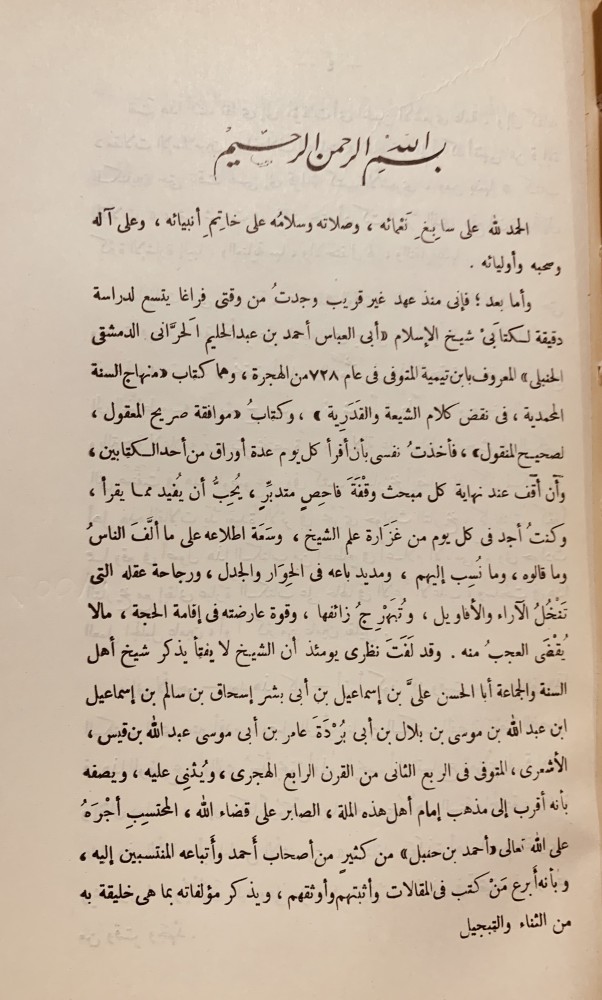 بسم الله الرحمن الرحيم
الحمد لله على سابِغِ نَعْمائه ، وصلاته وسلامُه على خاتِمِ أنبيائه ، وعلى آله
وصحبه وأوليائه .
وأما بعد ؛ فإنى منذ عهد غير قريب وجدتُ من وقتى فراغا يتسع لدراسة
دقيقة لكتابَىْ شيخ الإسلام «أبى العباس أحمد بن عبدالحليم الحرَّانى الدمشقى
الحنبلى» المعروف بابن تيمية المتوفى فى عام ٧٢٨ من الهجرة ، وهما كتاب «منهاج السنة
المحمدية ، فى نقض كلام الشيعة والقَدَرِية » ، وكتابُ «موافقة صريح المعقول ،
لصحيح المنقول» ، فأخذتُ نفسى بأن أقرأ كل يوم عدة أوراق من أحد الكتابين ،
وأن أقف عند نهاية كل مبحث وقْفَةَ فاحِصٍ متدبِّرٍ ، يُحِبُّ أن يُفيد مما يقرأ ،
وكنتُ أجد فى كل يوم من غَزَارة علم الشيخ ، وسَعَة اطلاعه على ما ألَّفَ الناسُ
وما قالوه ، وما نُسِب إليهم ، ومديد باعه فى الحِوَار والجدل ، ورجاحة عقله التى
تَنْخُلُ الآراء والأقاويل ، وتُبَهْرِجُ زائفها ، وقوة عارضته فى إقامة الحجة ، مالا
يُقْضَى العجبُ منه . وقد لَفَتَ نظرى يومئذ أن الشيخ لا يفتأ يذكر شيخ أهل
السنة والجماعة أبا الحسن علىَّ بن إسماعيل بن أبى بشر إسحاق بن سالم بن إسماعيل
ابن عبد الله بن موسى بن بلال بن أبى بُرْدَةَ عامر بن أبى موسى عبد الله بن قيس ،
الأشعرى ، المتوفى فى الربع الثانى من القرن الرابع الهجرى ، ويُثْنِى عليه ، ويصفه
بأنه أقرب إلى مذهب إمام أهل هذه الملة ، الصابر على قضاء الله ، المحتسِبِ أجْرَهُ
على الله تعالى «أحمد بن حنبل» من كثيرٍ من أصحاب أحمد وأتباعه المنتسبين إليه ،
وبأنه أبرع مَنْ كتب فى المقالات وأثبتهم وأوثقهم ، ويذكر مؤلفاته بما هى خليقة به
من الثناء والتبجيل